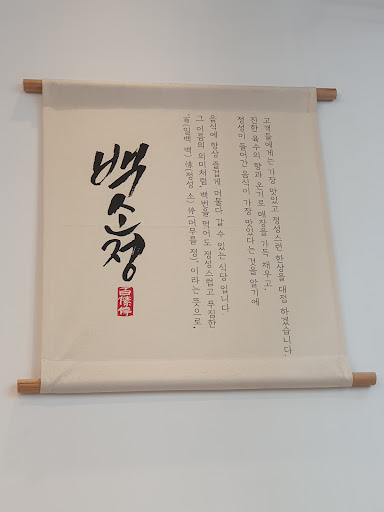 백소정
百傃停
'百(일백 백) 傃(정성 소) 停(머무를 정)' 이라는 뜻으로,
그 이름의 의미처럼, 백번을 먹어도 정성스럽고 푸짐한
음식에 항상 즐겁게 머물다 갈 수 있는 식당 입니다.
정성이 들어간 음식이 가장 맛있다는 것을 알기에
진한 육수의 향과 온기로 매장을 가득 채우고,
고객들에게는 가장 맛있고 정성스런 한상을 대접 하겠습니다.